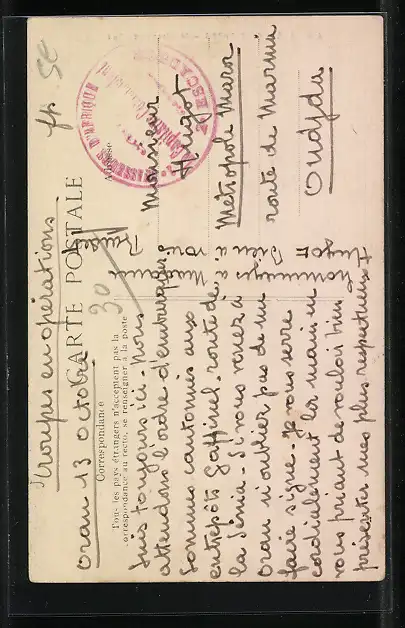 Troupes en opérations
CARTE POSTALE
Correspondance
Tous les pays étrangers n'acceptent pas la
correspondance au recto, se renseigner à la poste
Adresse
Oran 13 Octobre
Suis toujours ici - nous
attendons l'ordre d'embarquer.
Sommes cantonnés aux
entrepôts Gaffinel, route de
la Sénia. Si vous venez à
Oran n'oubliez pas de me
faire signe. Je vous serre
cordialement les mains en
vous priant de vouloir bien
présenter mes plus respectueux
hommages à Madame
Hugot
Bien à vous
Monsieur
Hugot
Métropole Maroc
route de Marnia
Oudjda
CHASSEURS D'AFRIQUE
30